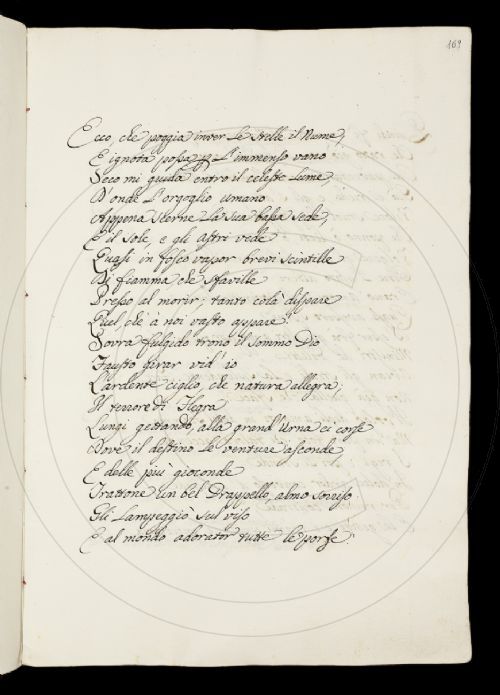 169
Ecco, che poggia inver le stelle il Nume,
E ignota possa p L'immenso vano
Seco mi guida entro il celeste lume,
D'onde L'orgoglio umano
Appena scerne La sua bassa sede,
E il sole, e gli astri vede
Quasi in fosco vapor brevi scintille
Di fiamma che sfaville
Presso al morir; tanto colà dispare
Quel, ch'à noi vasto appare.
Sovra fulgido trono il sommo Dio
Fausto girar vid' io
L'ardente ciglio, che natura allegra;
Il terrore di Flegra
Lungi gettando, alla grand'Urna ei corse
Dove il destino Le venture asconde
E delle più gioconde
Trattone un bel Drappello, almo sorriso
Gli Lampeggiò sul viso
E al mondo adorator tutte le porse.